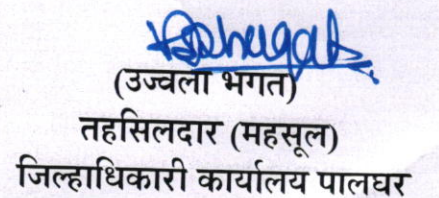 (उज्वला भगत)
तहसिलदार (महसूल)
जिल्हाधिकारी कार्यालय पालघर